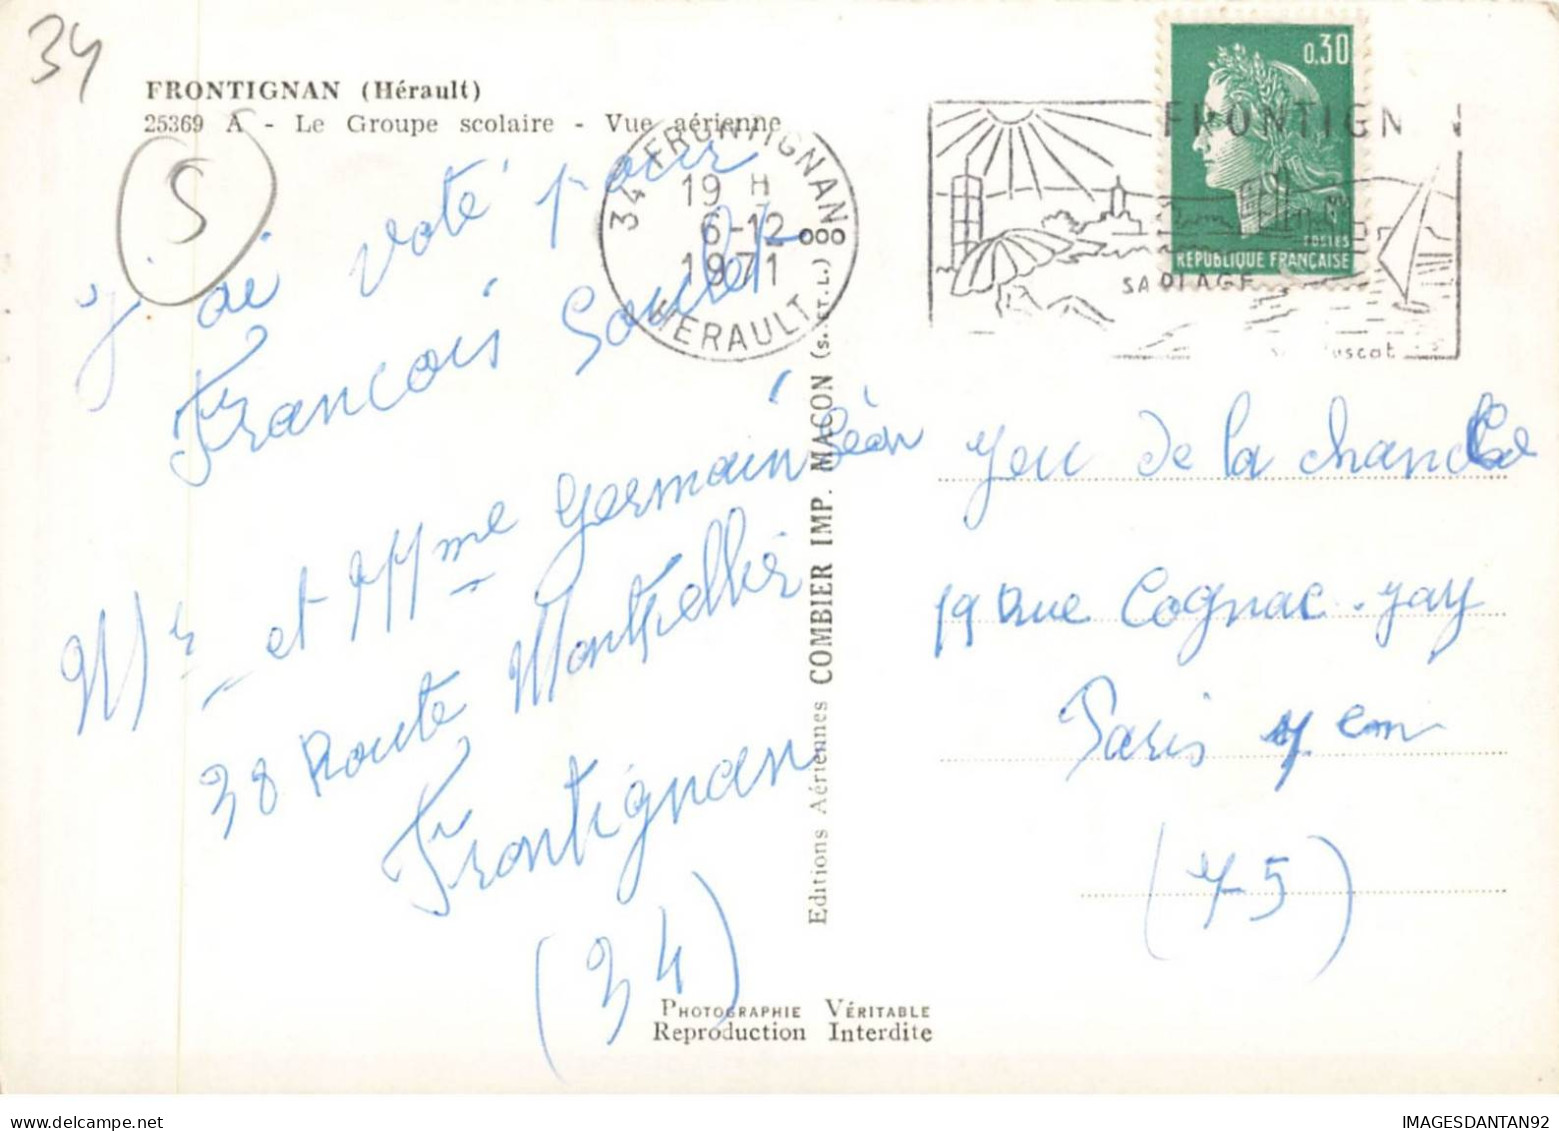 34
FRONTIGNAN (Hérault)
25369 A - Le Groupe scolaire - Vue aérienne
S
j'ai voté pour
Francois Soulet
Mr et Mme Germain Léon
38 Route Montpellier
Frontignan
(34)
34 FRONTIGNAN
19 H
6-12
1971
HERAULT
FRONTIGN N
SA PLAGE
uscat
0,30
POSTES
REPUBLIQUE FRANÇAISE
Editions Aériennes COMBIER IMP. MACON (S.E.T.L.) ooo
jeu de la chance
19 Rue Cognac-jay
Paris 7 em
(75)
PHOTOGRAPHIE VÉRITABLE
Reproduction Interdite
www.delcampe.net
IMAGESDANTAN92